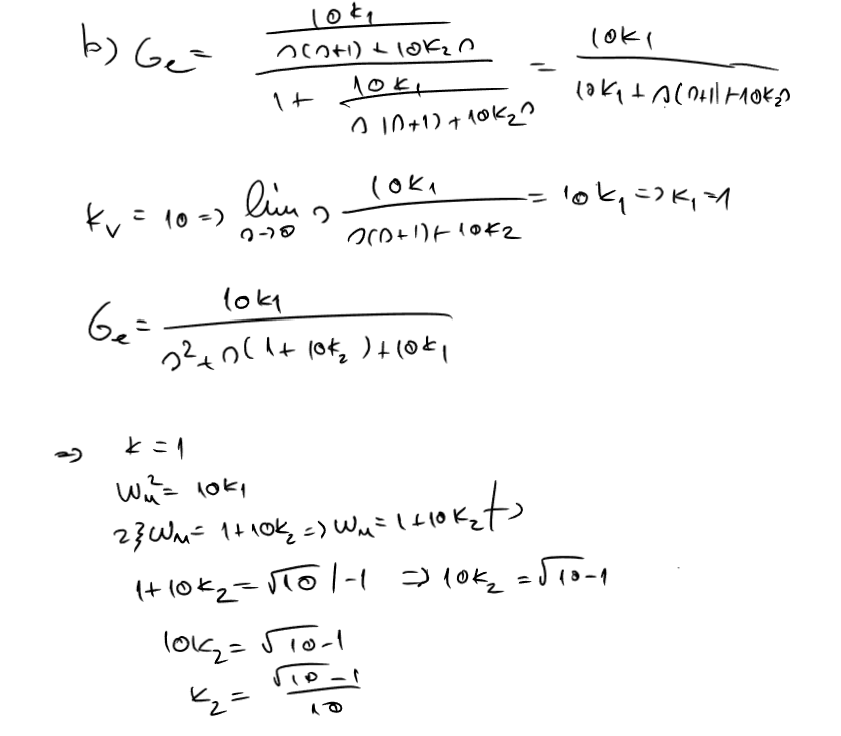 b) Ge = (10k₁ / (s(s+1) + 10k₂s)) / (1 + 10k₁ / (s(s+1) + 10k₂s)) = 10k₁ / (10k₁ + s(s+1) + 10k₂s)
k_v = 10 => lim s→0 s 10k₁ / (s(s+1) + 10k₂) = 10k₁ => k₁ = 1
Ge = 10k₁ / (s² + s(1 + 10k₂) + 10k₁)
=> k = 1
ωₙ² = 10k₁
2ξωₙ = 1 + 10k₂ => ωₙ = 1 + 10k₂
1 + 10k₂ = √10 / -1 => 10k₂ = √10 - 1
10k₂ = √10 - 1
k₂ = (√10 - 1) / 10